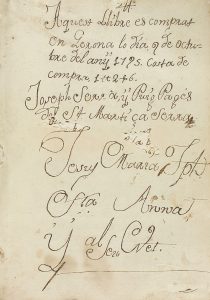 Aquest Llibre es comprat
en Gerona lo dia, 9 de Octu-
bre del any 1795. Costa de
compra, 1 ll 2 ß 6.
Joseph Serra, y Puig Pages
de St Martí ça Serra
Jesus Maria Jph
Anna
Y al seu